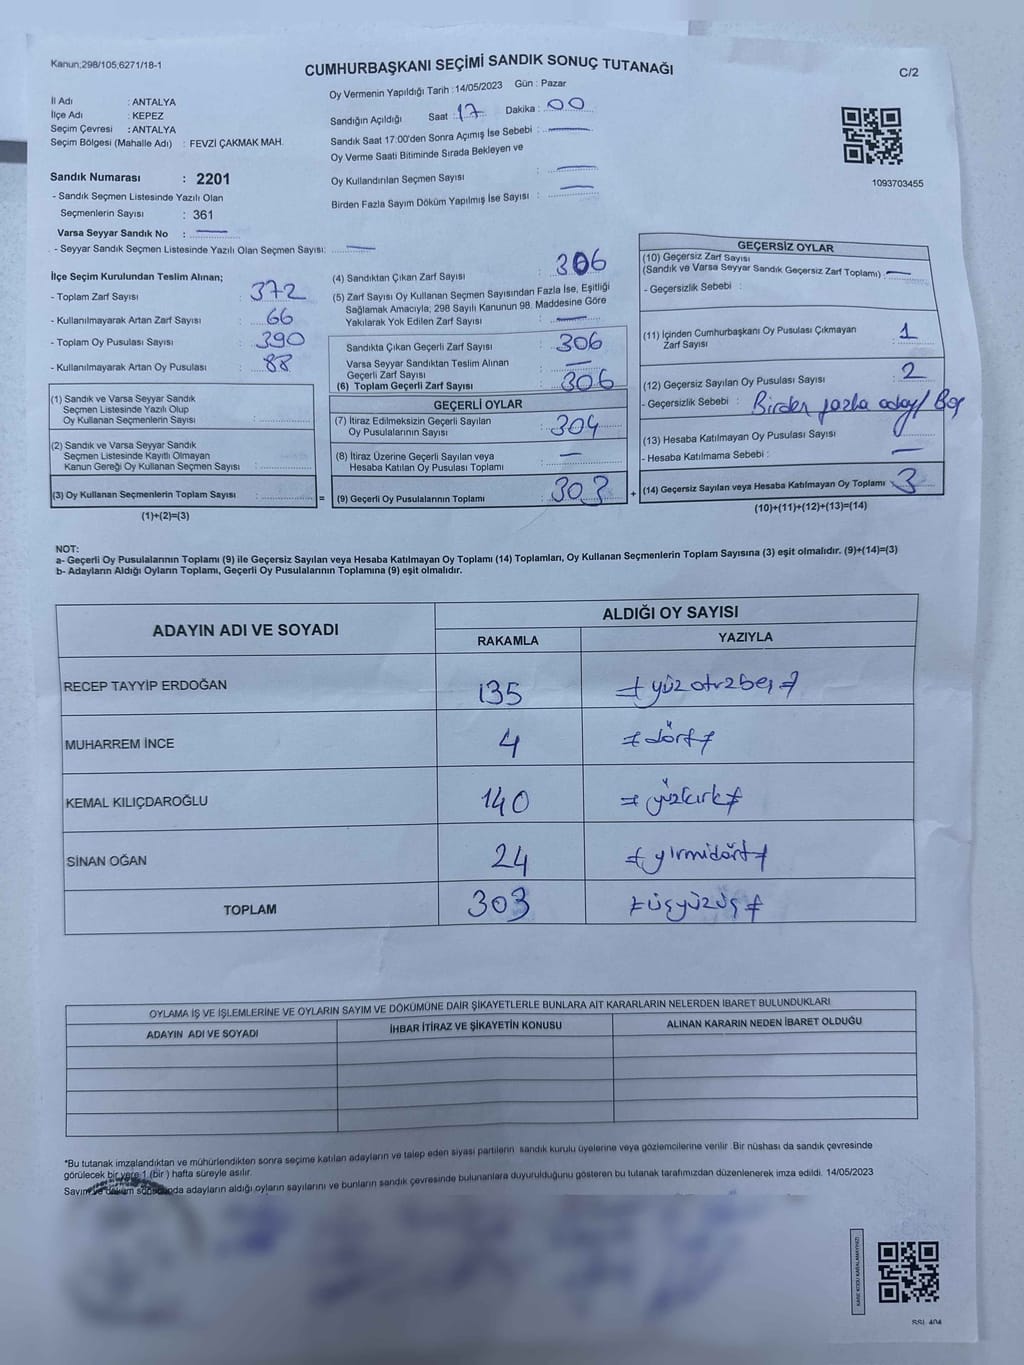 Kanun;298/105,6271/18-1
CUMHURBAŞKANI SEÇİMİ SANDIK SONUÇ TUTANAĞI
C/2
Oy Vermenin Yapıldığı Tarih :14/05/2023 Gün : Pazar
İl Adı : ANTALYA
İlçe Adı : KEPEZ
Seçim Çevresi : ANTALYA
Seçim Bölgesi (Mahalle Adı) : FEVZİ ÇAKMAK MAH.
Sandık Numarası : 2201
- Sandık Seçmen Listesinde Yazılı Olan
Seçmenlerin Sayısı : 361
Varsa Seyyar Sandık No : —
- Seyyar Sandık Seçmen Listesinde Yazılı Olan Seçmen Sayısı: —
Sandığın Açıldığı Saat : 17 Dakika : 00
Sandık Saat 17:00'den Sonra Açımış İse Sebebi : —
Oy Verme Saati Bitiminde Sırada Bekleyen ve
Oy Kullandırılan Seçmen Sayısı : —
Birden Fazla Sayım Döküm Yapılmış İse Sayısı : —
1093703455
İlçe Seçim Kurulundan Teslim Alınan;
- Toplam Zarf Sayısı : 372
- Kullanılmayarak Artan Zarf Sayısı : 66
- Toplam Oy Pusulası Sayısı : 390
- Kullanılmayarak Artan Oy Pusulası : 88
(1) Sandık ve Varsa Seyyar Sandık
Seçmen Listesinde Yazılı Olup
Oy Kullanan Seçmenlerin Sayısı :
(2) Sandık ve Varsa Seyyar Sandık
Seçmen Listesinde Kayıtlı Olmayan
Kanun Gereği Oy Kullanan Seçmen Sayısı :
(3) Oy Kullanan Seçmenlerin Toplam Sayısı : =
(1)+(2)=(3)
(4) Sandıktan Çıkan Zarf Sayısı : 306
(5) Zarf Sayısı Oy Kullanan Seçmen Sayısından Fazla İse, Eşitliği
Sağlamak Amacıyla; 298 Sayılı Kanunun 98. Maddesine Göre
Yakılarak Yok Edilen Zarf Sayısı : —
Sandıkta Çıkan Geçerli Zarf Sayısı : 306
Varsa Seyyar Sandıktan Teslim Alınan
Geçerli Zarf Sayısı : —
(6) Toplam Geçerli Zarf Sayısı : 306
GEÇERLİ OYLAR
(7) İtiraz Edilmeksizin Geçerli Sayılan
Oy Pusulalarının Sayısı : 304
(8) İtiraz Üzerine Geçerli Sayılan veya
Hesaba Katılan Oy Pusulası Toplamı : —
(9) Geçerli Oy Pusulalarının Toplamı : 303 +
GEÇERSİZ OYLAR
(10) Geçersiz Zarf Sayısı
(Sandık ve Varsa Seyyar Sandık Geçersiz Zarf Toplamı) : —
- Geçersizlik Sebebi :
(11) İçinden Cumhurbaşkanı Oy Pusulası Çıkmayan
Zarf Sayısı : 1
(12) Geçersiz Sayılan Oy Pusulası Sayısı : 2
- Geçersizlik Sebebi : Birden fazla aday/ Boş
(13) Hesaba Katılmayan Oy Pusulası Sayısı : —
- Hesaba Katılmama Sebebi :
(14) Geçersiz Sayılan veya Hesaba Katılmayan Oy Toplamı : 3
(10)+(11)+(12)+(13)=(14)
NOT:
a- Geçerli Oy Pusulalarının Toplamı (9) ile Geçersiz Sayılan veya Hesaba Katılmayan Oy Toplamı (14) Toplamları, Oy Kullanan Seçmenlerin Toplam Sayısına (3) eşit olmalıdır. (9)+(14)=(3)
b- Adayların Aldığı Oyların Toplamı, Geçerli Oy Pusulalarının Toplamına (9) eşit olmalıdır.
ADAYIN ADI VE SOYADI ALDIĞI OY SAYISI
RAKAMLA YAZIYLA
RECEP TAYYİP ERDOĞAN 135 ≠yüzotuzbeş≠
MUHARREM İNCE 4 ≠dört≠
KEMAL KILIÇDAROĞLU 140 ≠yüzkırk≠
SİNAN OĞAN 24 ≠yirmidört≠
TOPLAM 303 ≠üçyüzüç≠
OYLAMA İŞ VE İŞLEMLERİNE VE OYLARIN SAYIM VE DÖKÜMÜNE DAİR ŞİKAYETLERLE BUNLARA AİT KARARLARIN NELERDEN İBARET BULUNDUKLARI
ADAYIN ADI VE SOYADI İHBAR İTİRAZ VE ŞİKAYETİN KONUSU ALINAN KARARIN NEDEN İBARET OLDUĞU
*Bu tutanak imzalandıktan ve mühürlendikten sonra seçime katılan adayların ve talep eden siyasi partilerin sandık kurulu üyelerine veya gözlemcilerine verilir .Bir nüshası da sandık çevresinde
görülecek bir yere 1 (bir ) hafta süreyle asılır.
Sayım ve döküm sonucunda adayların aldığı oyların sayılarını ve bunların sandık çevresinde bulunanlara duyurulduğunu gösteren bu tutanak tarafımızdan düzenlenerek imza edildi. 14/05/2023